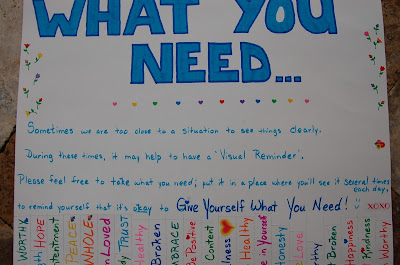 WHAT YOU
NEED...
Sometimes we are too close to a situation to see things clearly.
During these times, it may help to have a 'Visual Reminder'.
Please feel free to take what you need; put it in a place where you'll see it several times
each day,
to remind yourself that it's okay to Give Yourself What You Need! XOXO
WORTHY
HOPE
PEACE
WHOLE
Loved
TRUST
Healthy
Broken
Be Positive
Content
Healthy
in Yourself
Honesty
Love
Broken
Happiness
Kindness
Worthy